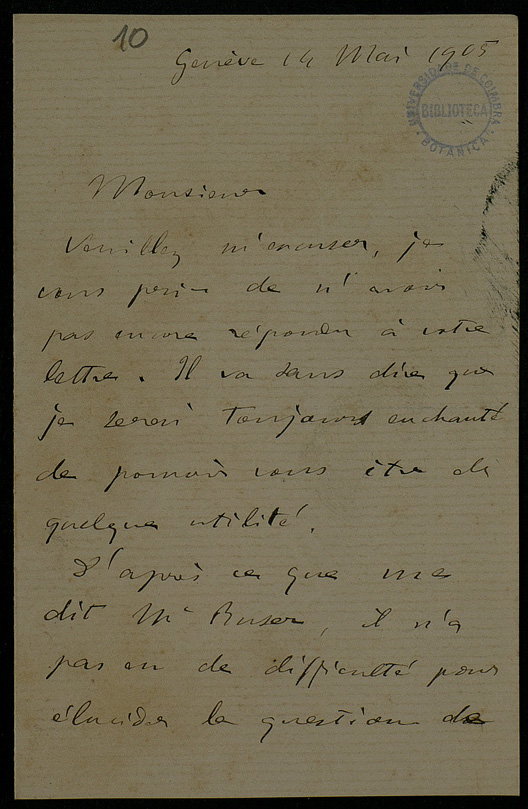 10
Genève 14 Mai 1905
UNIVERSIDADE DE COIMBRA
BIBLIOTECA
BOTANICA
Monsieur
Veuillez m'excuser, je
vous prie de n'avoir
pas encore répondu à votre
lettre. Il va sans dire que
je serai toujours enchanté
de pouvoir vous être de
quelque utilité.
D'après ce que me
dit Mr Buser, il n'a
pas eu de difficulté pour
élucider la question de